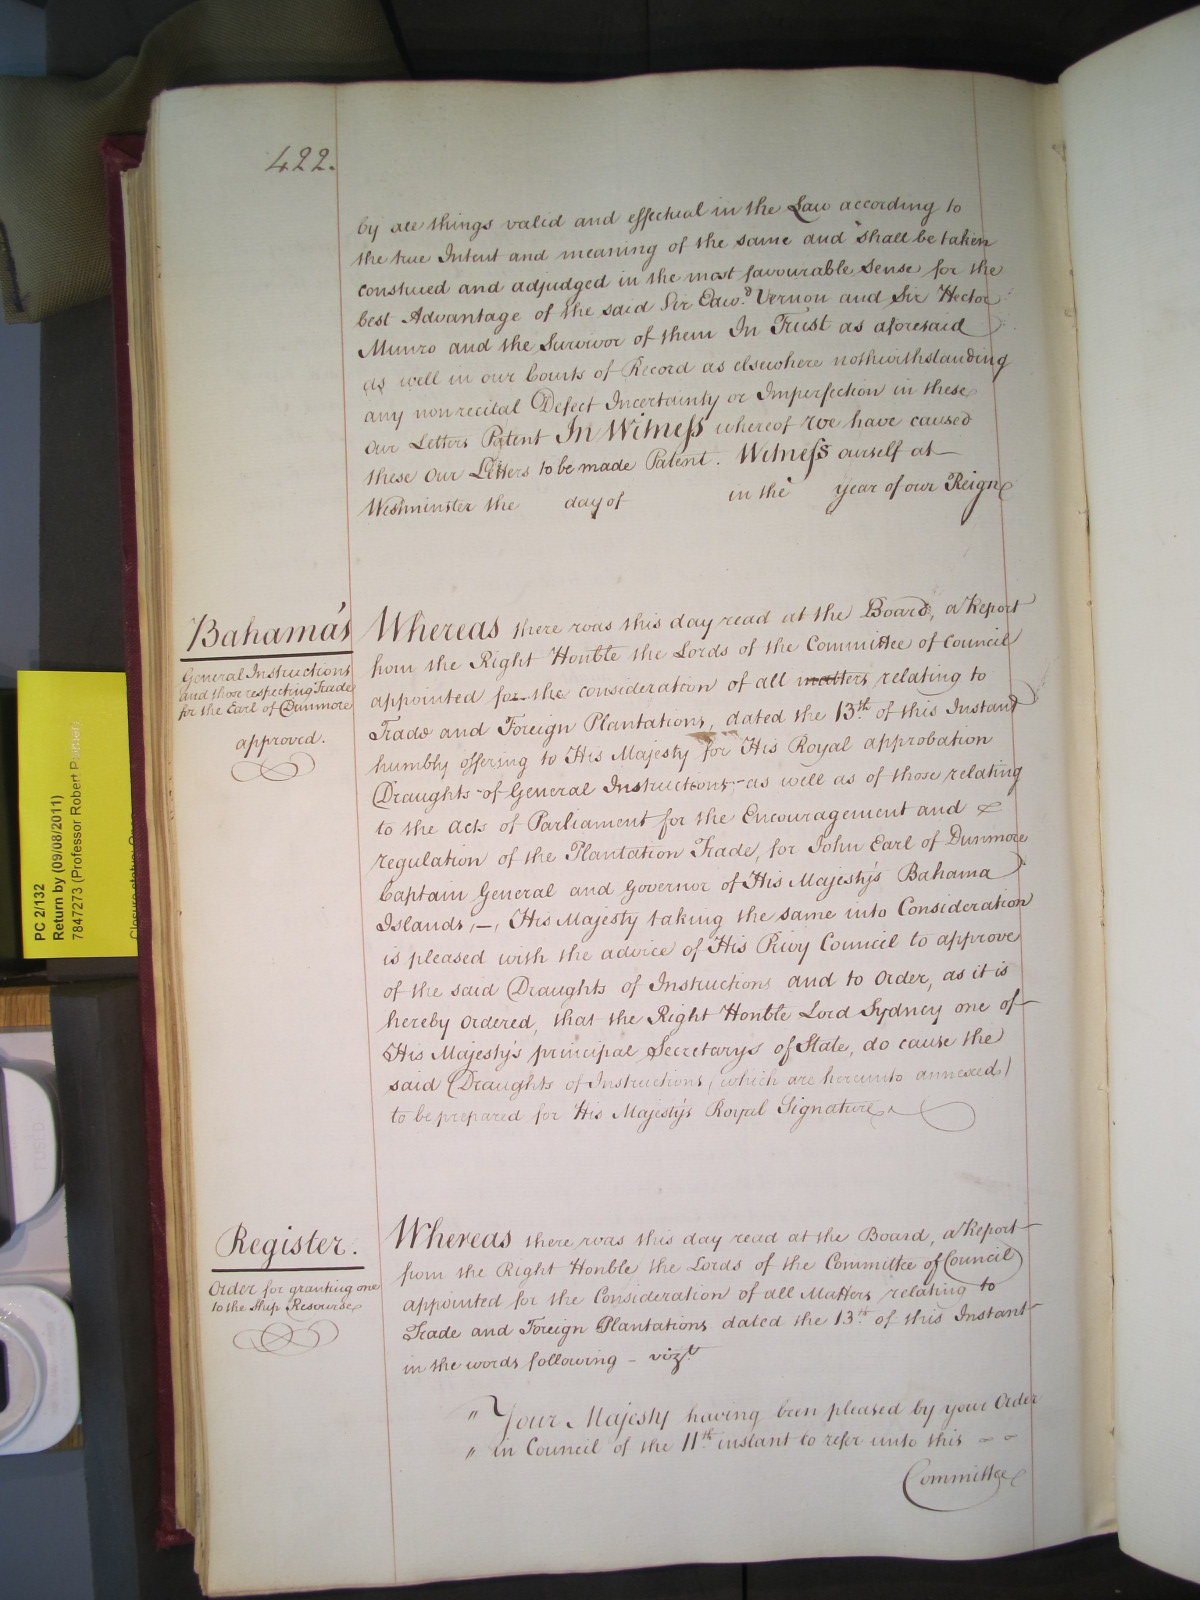 422.
by all things valid and effectual in the Law according to
the true Intent and meaning of the same and shall be taken
construed and adjudged in the most favourable Sense for the
best Advantage of the said Sir Edwd. Vernon and Sir Hector
Munro and the Survivor of them In Trust as aforesaid
as well in our Courts of Record as elsewhere nothwithstanding
any non recital Defect Incertainty or Imperfection in these
our Letters Patent In Witness whereof we have caused
these our Letters to be made Patent. Witness ourself at
Westminster the day of in the year of our Reign
Bahama's
General Instructions
and those respecting Trade
for the Earl of Dunmore
approved.
Whereas there was this day read at the Board, a Report
from the Right Honble the Lords of the Committee of Council
appointed for the consideration of all matters relating to
Trade and Foreign Plantations, dated the 13th of this Instant
humbly offering to His Majesty for His Royal approbation
Draughts of General Instructions, as well as of those relating
to the Acts of Parliament for the Encouragement and &
regulation of the Plantation Trade, for John Earl of Dunmore
Captain General and Governor of His Majesty's Bahama
Islands,—, His Majesty taking the same into Consideration
is pleased with the advice of His Privy Council to approve
of the said Draughts of Instructions and to Order, as it is
hereby Ordered, that the Right Honble Lord Sydney one of
His Majesty's principal Secretarys of State, do cause the
said Draughts of Instructions (which are hereunto annexed)
to be prepared for His Majesty's Royal Signature.
Register.
Order for granting one
to the Ship Resourse
Whereas there was this day read at the Board, a Report
from the Right Honble the Lords of the Committee of Council
appointed for the Consideration of all Matters relating to
Trade and Foreign Plantations dated the 13th of this Instant
in the words following - vizt.
" Your Majesty having been pleased by your Order
" in Council of the 11th instant to refer unto this
Committee
PC 2/132
Return by (09/08/2011)
7847273 (Professor Robert Palmer)